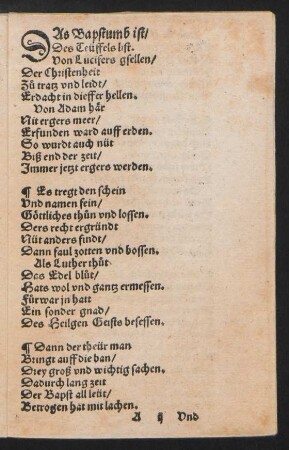 DAs Bapstumb ist/
Des Teüffels list.
Von Lucifers gsellen/
Der Christenheit
Zů tratz vnd leidt/
Erdacht in dieffer hellen.
Von Adam här
Nit ergers meer/
Erfunden ward auff erden.
So wurdt auch nüt
Biß end der zeit/
Jmmer jetzt ergers werden.
¶ Es tregt den schein
Vnd namen fein/
Göttliches thůn vnd lossen.
Ders recht ergründt
Nüt anders findt/
Dann faul zotten vnd bossen.
Als Luther thůt
Das Edel blůt/
Hats wol vnd gantz ermessen.
Fürwar jn hatt
Ein sonder gnad/
Des Heilgen Geists besessen.
¶ Dann der theür man
Bringt auff die ban/
Drey groß vnd wichtig sachen.
Dadurch lang zeit
Der Bapst all leüt/
Betrogen hat mit lachen.
A ij Vnd